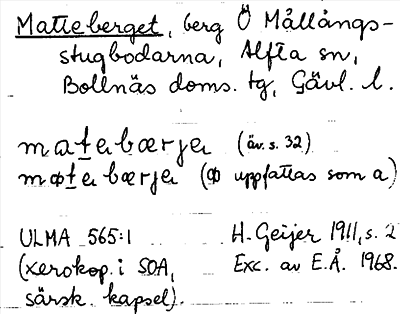 Matteberget, berg Ö Mållångs-
stugbodarna, Alfta sn,
Bollnäs doms. tg, Gävl. l.
matebærjeɹ (äv. s. 32)
møteɹbærjeɹ (ⱷ uppfattas som a)
ULMA 565:1 H. Geijer 1911, s. 2
(xerokop. i SOA, Exc. av E.Å. 1968.
särsk. kapsel).